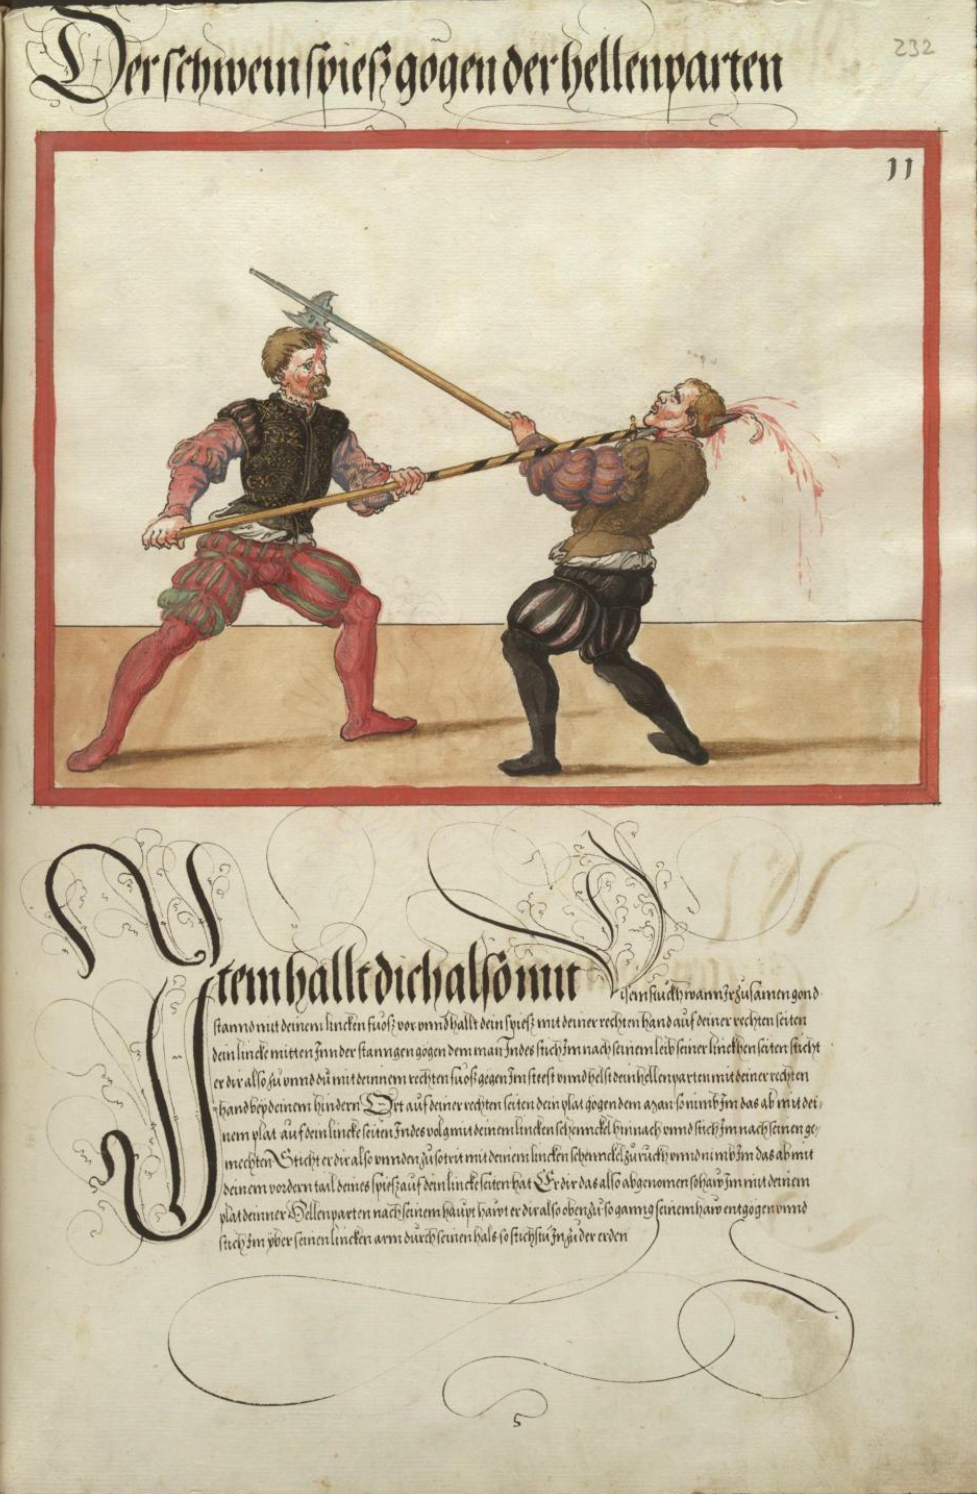 Der schwein spiesz gögen der hellenparten
232
11
Item hallt dich also mit
disem stuckh wann Ir zusamen gond
stannd mit deinem lincken fuosz vor vnnd hallt dein spiesz mit deiner rechten hand auf deiner rechten seiten
dein lincke mitten Inn der stanngen gögen dem man Indes stich Im nach seinem leib seiner linckhen seiten sticht
er dir also zu vnnd du mit deinnem rechten fuosz gegen Im steest vnnd helst dein hellenparten mit deiner rechten
hand bey deinem hindern Ort auf deiner rechten seiten dein plat gögen dem man so nimb Im das ab mit dei-
nem plat auf dein lincke seiten Indes volg mit deinem lincken schennckel hinnach vnnd stich Im nach seinen ge-
mechten Sticht er dir also vnnden zu so trit mit deinem lincken schennckel zuruckh vnnd nimb Im das ab mit
deinem vordern tail deines spiesz auf dein lincke seiten hat Er dir das also abgenomen so haw Im mit deinem
plat deinner Hellenparten nach seinem haupt hawt er dir also oben zu so ganng seinem haw entgögen vnnd
stich Im yber seinen lincken arm durch seinen hals so stichstu In zu der erden
5